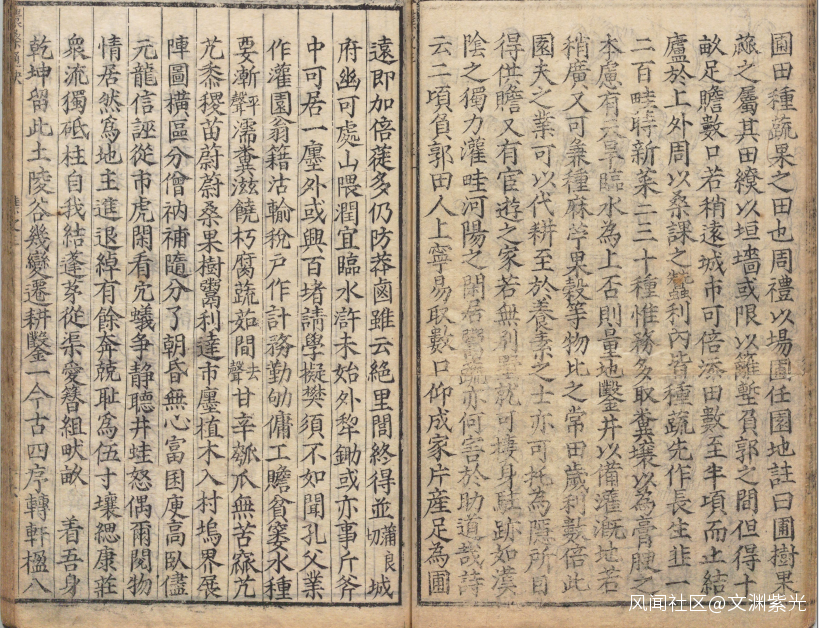 圃田種蔬果之田也周禮以場圃任園地註曰圃樹果
蓏之屬其田繚以垣墻或限以籬塹負郭之間但得十
畝足贍數口若稍遠城市可倍添田數至半頃而止結
廬於上外周以桑課之蠶利内皆種蔬先作長生韭一
二百畦時新菜二三十種惟務多取糞壤以為膏腴之
本慮有天旱臨水為上否則量地鑿井以備灌漑地若
稍廣又可兼種麻苧果穀等物比之常田歲利數倍此
園夫之業可以代耕至於養素之士亦可托為隱所日
得供贍又有宦遊之家若無别墅就可棲身駐跡如漢
陰之獨力灌畦河陽之閑居鬻蔬亦何害於助道哉詩
云二頃負郭田人上寧易取數口仰成家片産足為圃
遠即加倍蓰多仍防莽鹵雖云絶里閭終得並蒲良切城
府幽可處山隈潤宜臨水滸未始外犂鋤或亦事斤斧
中可居一廛外或興百堵請學擬樊須不如聞孔父業
作灌園翁籍沽輸稅戶作計務勤劬傭工贍貧窶水種
要漸平聲濡糞滋饒朽腐蔬茹間去聲甘辛瓠瓜無苦窳芃
芃黍稷苗蔚蔚桑果樹鬻利達市廛植木入村塢界展
陣圖横區分僧衲補隨分了朝昏無心富囷庾高臥儘
元龍信誣從市虎閑看宂蟻争静聽井蛙怒偶爾閱物
情居然爲地主進退綽有餘奔競耻爲伍寸壤緦康莊
衆流獨砥柱自我結蓬茅從渠愛簪組畎畝 着吾身
乾坤留此土陵谷幾變遷耕鑿一今古四序轉軒楹八
风闻社区@文渊紫光